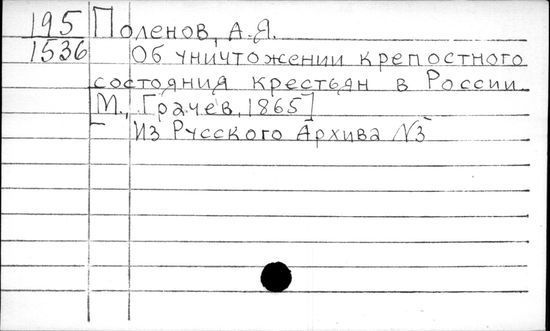 195 Поленов, А.Я.
1536 Об уничтожении крепостного
состояния крестьян в России
[М., Грачев, 1865]
Из Русского Архива №3